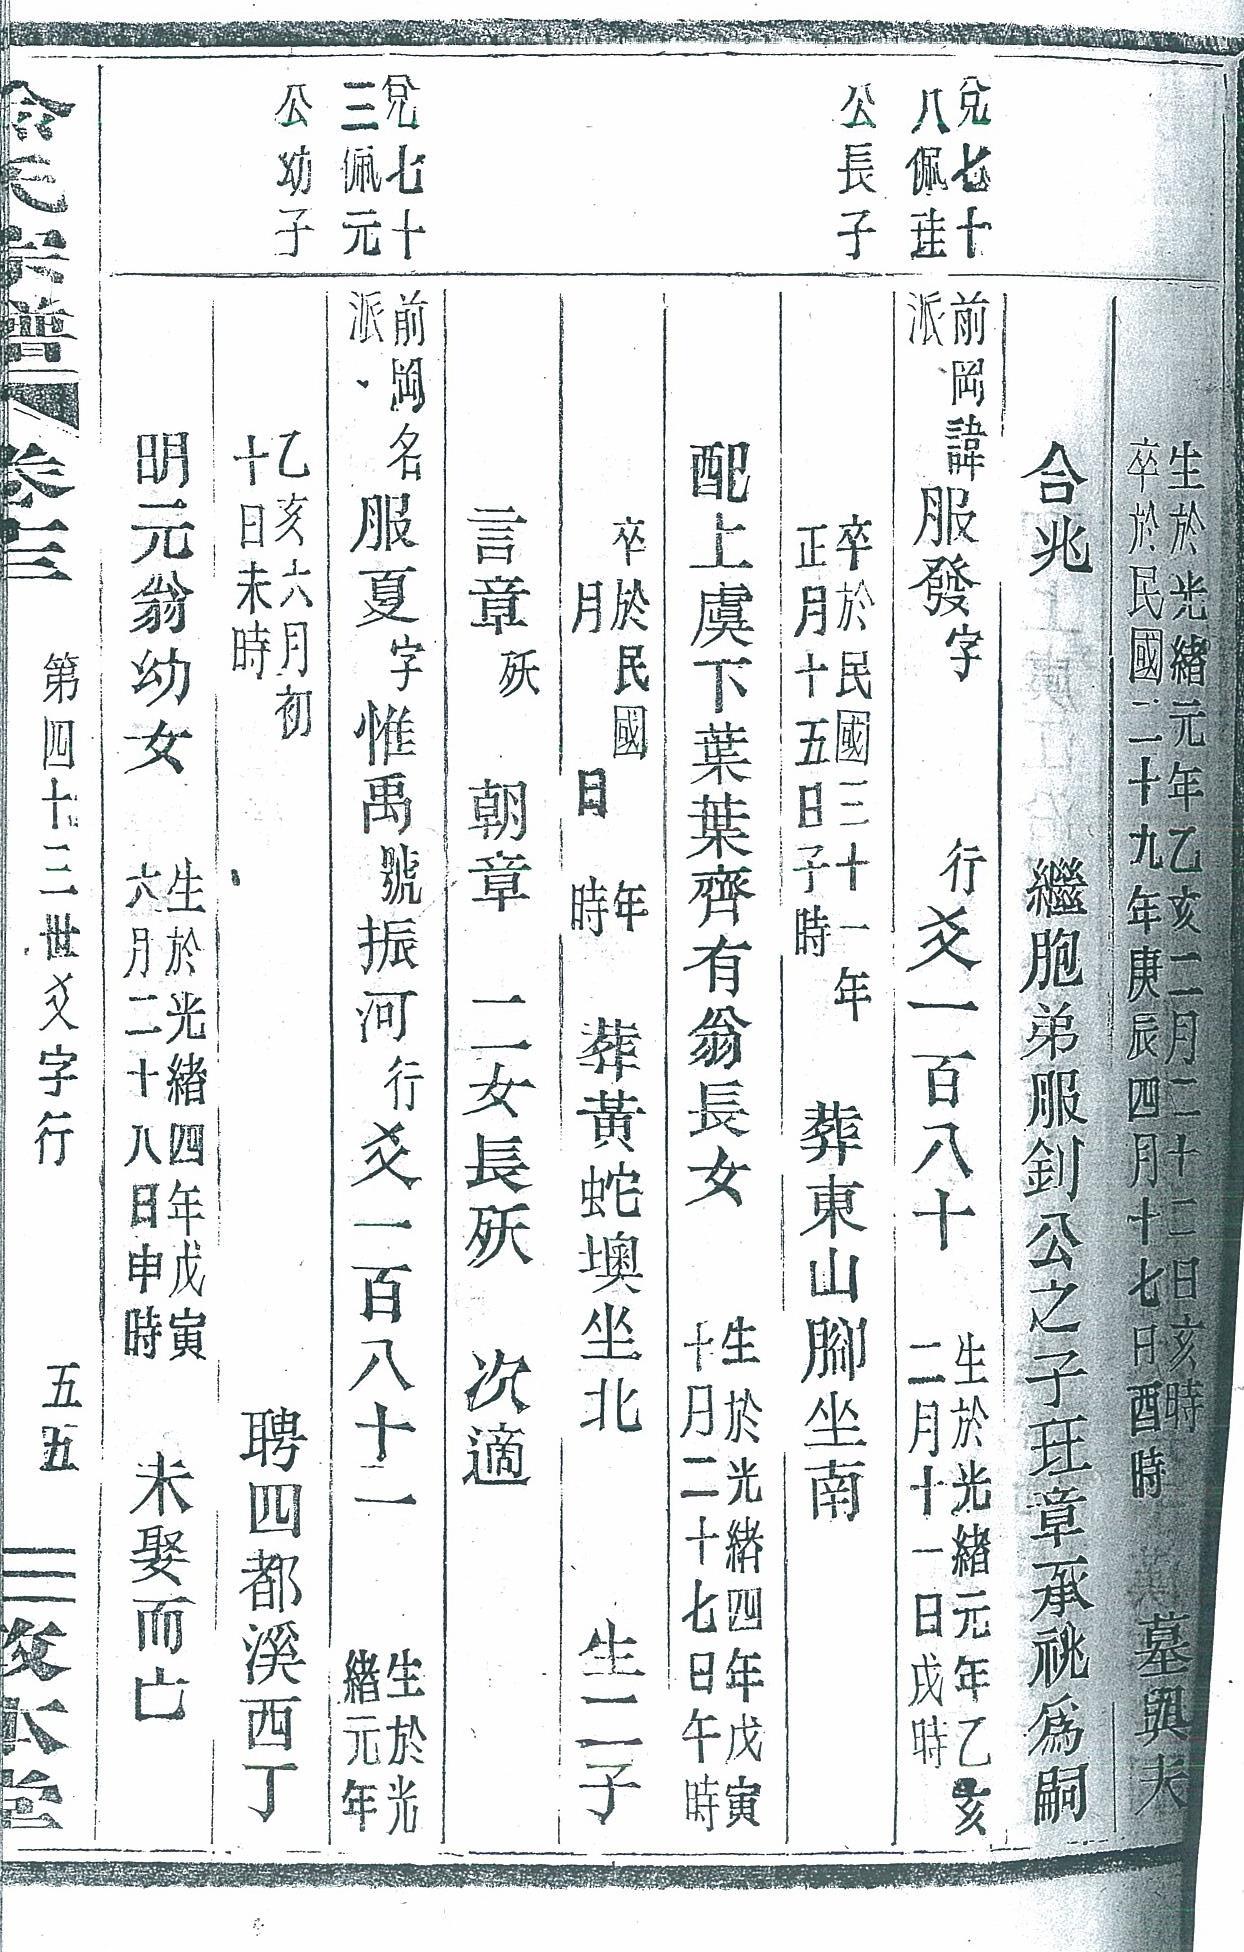 生於光緒元年乙亥二月二十二日亥時
卒於民國二十九年庚辰四月十七日酉時
墓與夫
合兆 繼胞弟服釗公之子玨章承祧為嗣
兌七十
八佩珪
公長子
前岡諱服發字 行爻一百八十
派
生於光緒元年乙亥
二月十一日戌時
卒於民國三十一年
正月十五日子時
葬東山腳坐南
配上虞下葉葉齊有翁長女
生於光緒四年戊寅
十月二十七日午時
卒於民國 年
月 日 時
葬黃蛇墺坐北 生二子
言章殀 朝章 二女長殀 次適
兌七十
三佩元
公幼子
前岡名服夏字惟禹號振河行爻一百八十二
派
生於光
緒元年
乙亥六月初
十日未時
聘四都溪西丁
明元翁幼女
生於光緒四年戊寅
六月二十八日申時
未娶而亡
氏宗譜 卷三 第四十三世爻字行 五五 敦本堂